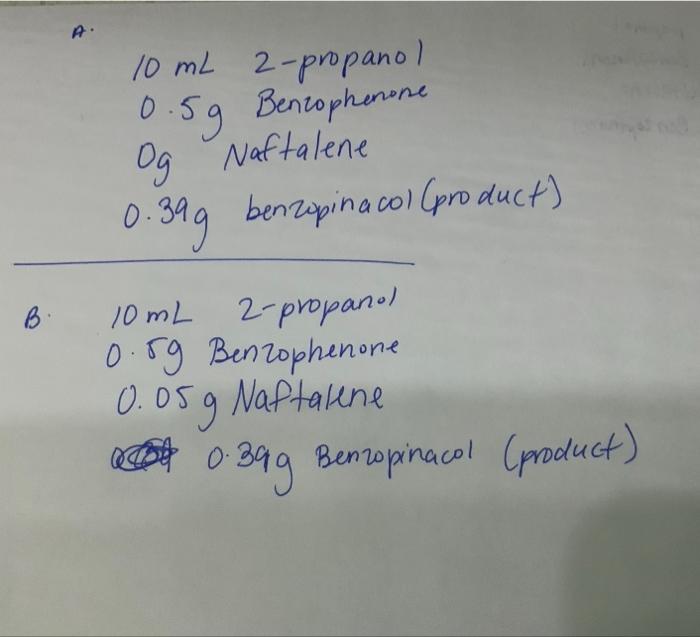 A.
10 mL 2-propanol
0.5g Benzophenone
0g Naftalene
0.39g benzopinacol (product)
B.
10 mL 2-propanol
0.5g Benzophenone
0.05g Naftalene
0.39g Benzopinacol (product)